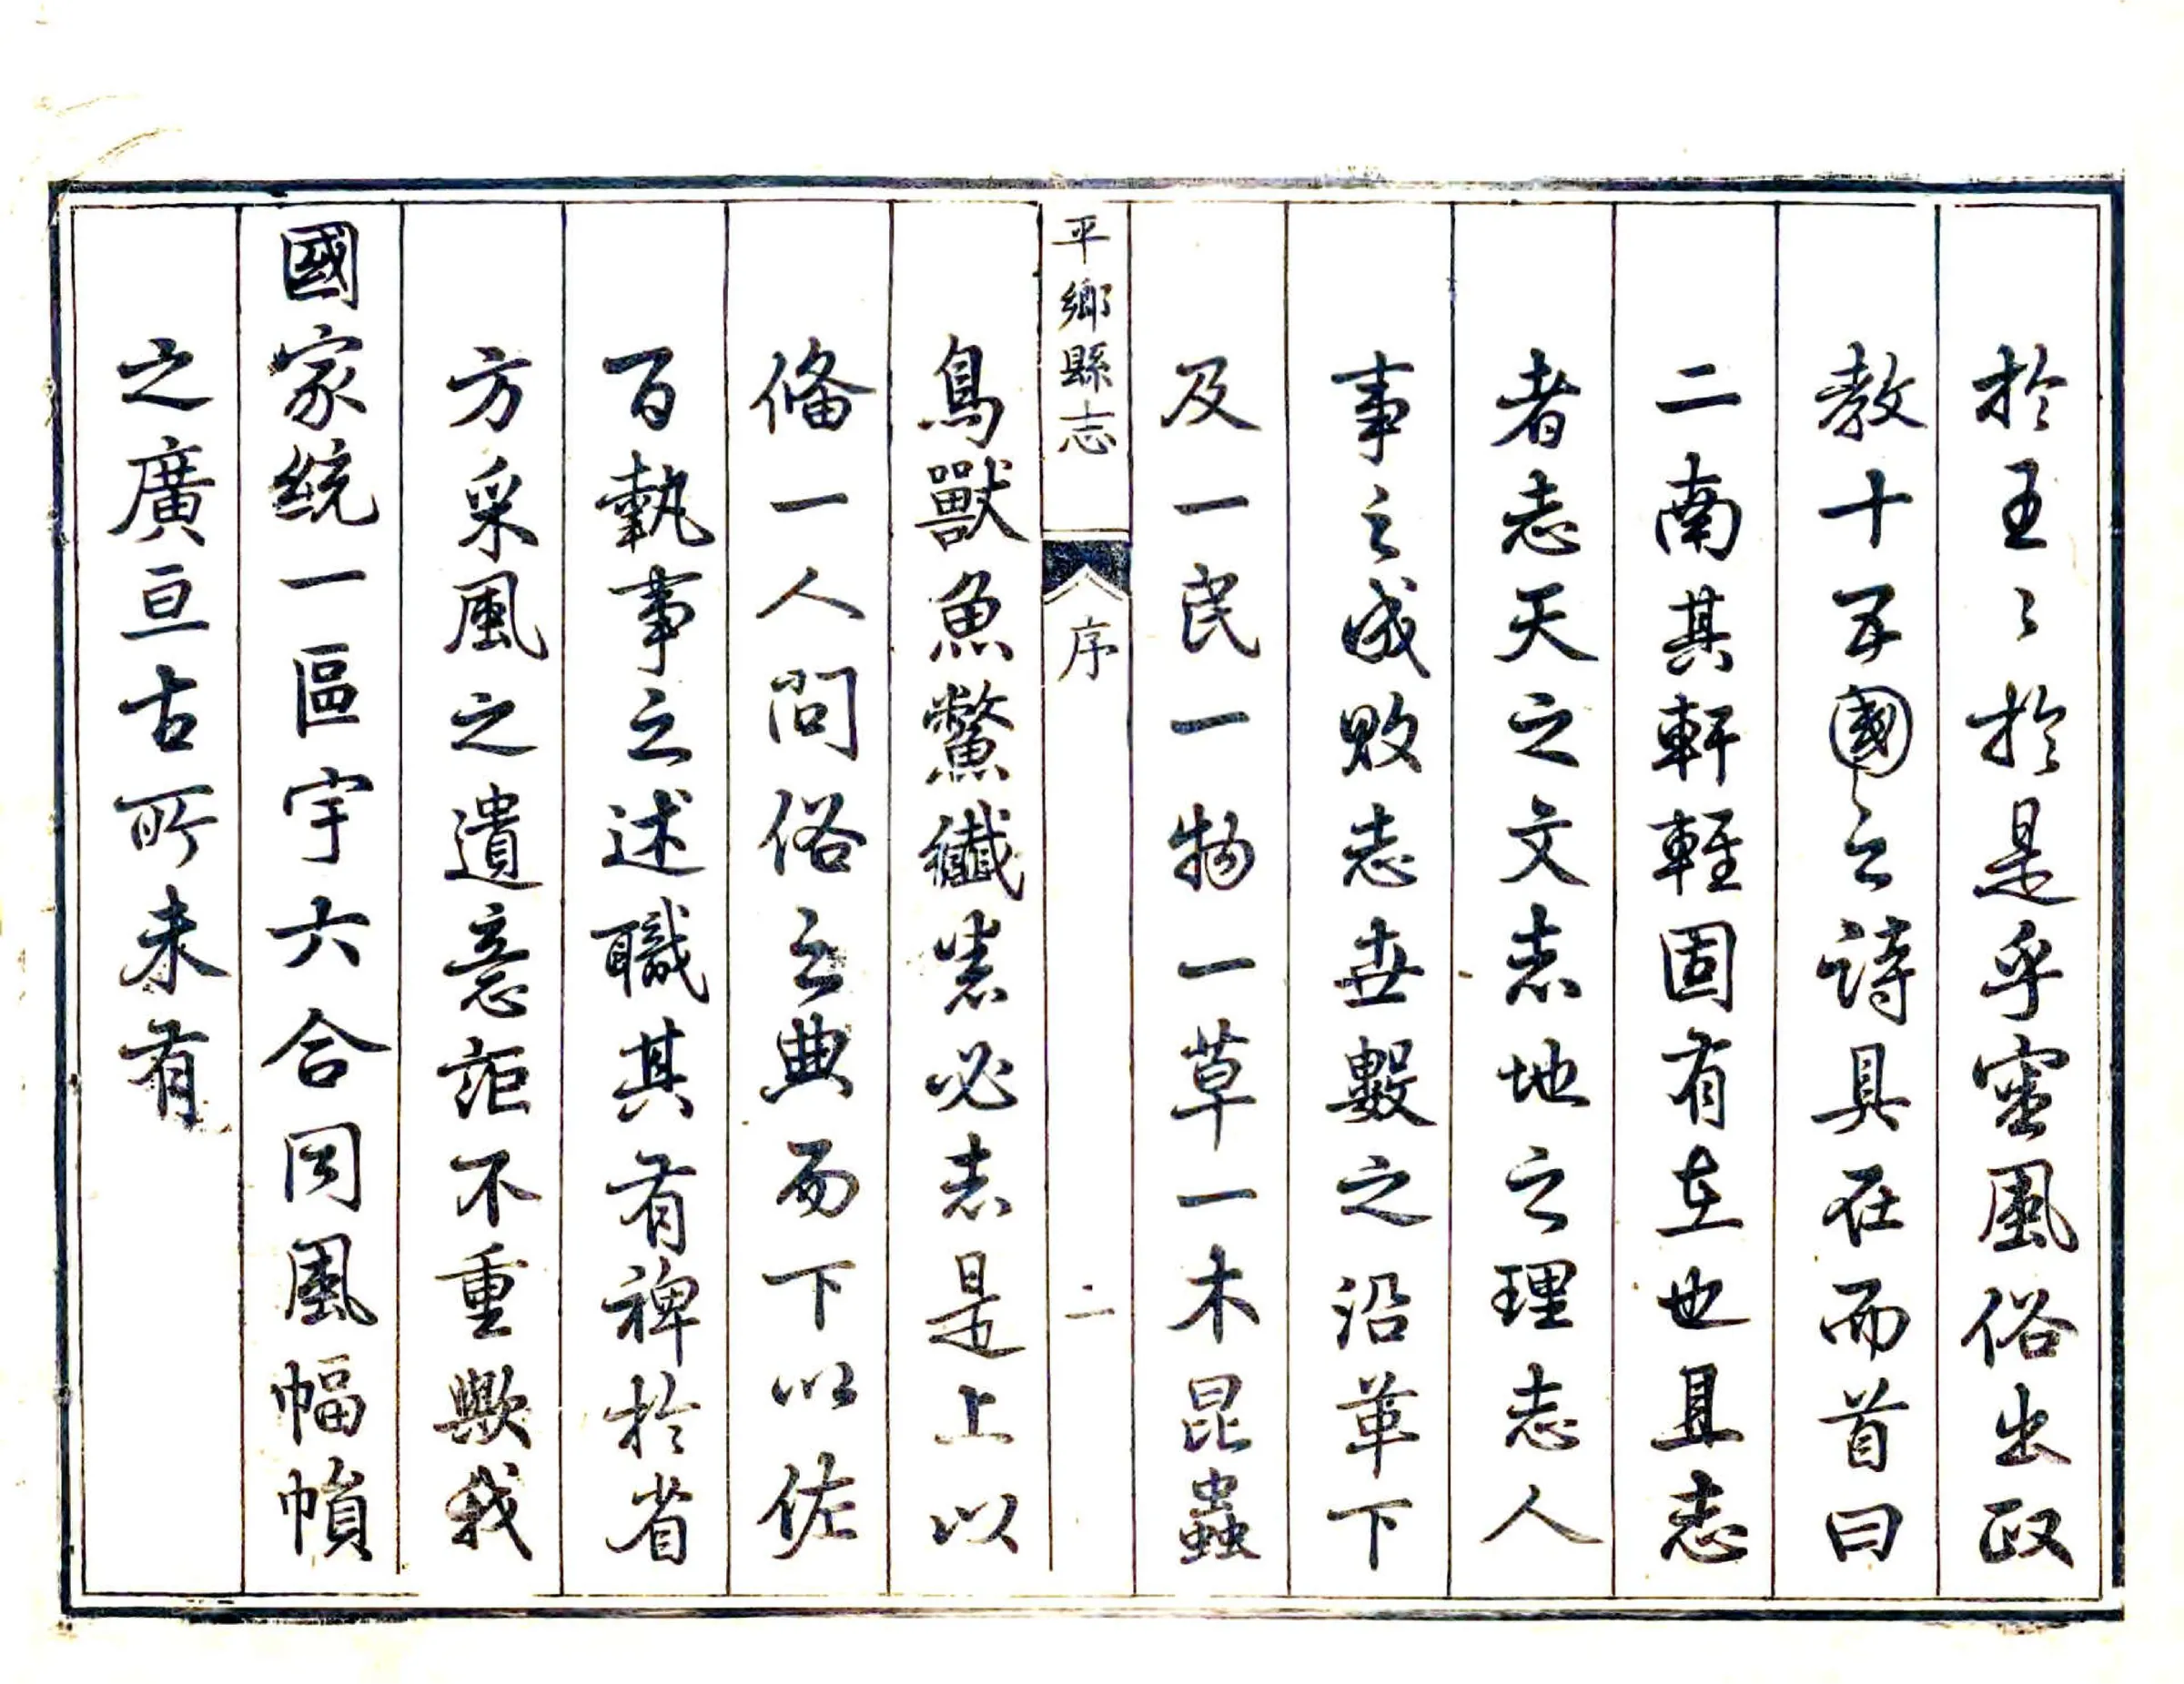 於王〻於是乎風俗出政
教十五國之詩具在而首曰
二南其軒輊固有在也且志
者志天之文志地之理志人
事之成敗志世數之沿革下
及一民一物一草一木昆蟲
平鄉縣志 序 二
鳥獸魚鱉纖悉必志是上以
俻一人問俗之典而下以佐
百執事之述職其有裨於省
方采風之遺意詎不重歟我
國家統一區宇六合同風幅幀
之廣亘古所未有